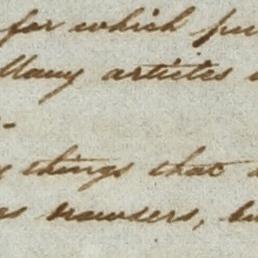 for which pu
Many articles
-
things that
as trowsers, bu